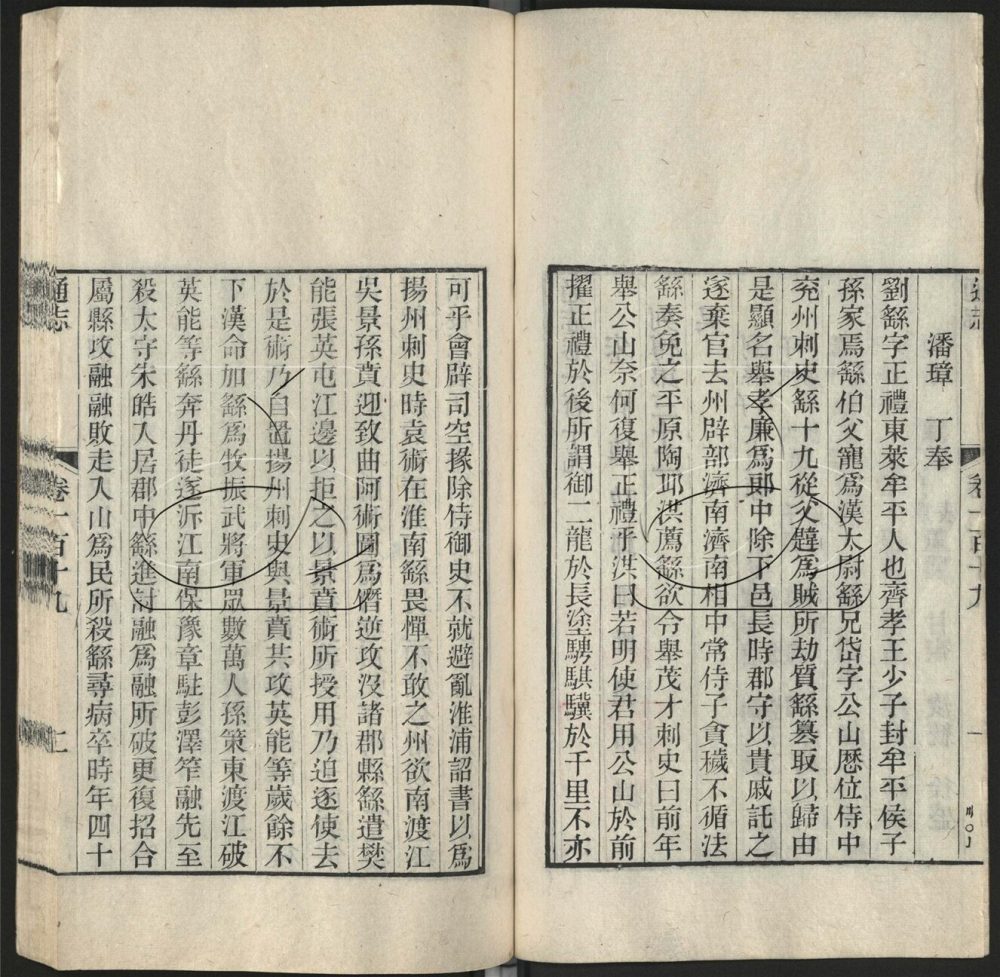 潘璋 丁奉
劉繇字正禮東萊牟平人也齊孝王少子封牟平侯子
孫家焉繇伯父寵爲漢太尉繇兄岱字公山歷位侍中
兖州刺史繇十九從父韙爲賊所劫質繇篡取以歸由
是顯名舉孝廉爲郎中除下邑長時郡守以貴戚託之
遂棄官去州辟部濟南濟南相中常侍子貪穢不循法
繇奏免之平原陶邱洪薦繇欲令舉茂才刺史曰前年
舉公山奈何復舉正禮乎洪曰若明使君用公山於前
擢正禮於後所謂御二龍於長塗騁騏驥於千里不亦
可乎會辟司空掾除侍御史不就避亂淮浦詔書以爲
揚州刺史時袁術在淮南繇畏憚不敢之州欲南渡江
吳景孫賁迎致曲阿術圖爲僭逆攻沒諸郡縣繇遣樊
能張英屯江邊以拒之以景賁術所授用乃迫逐使去
於是術乃自置揚州刺史與景賁共攻英能等歲餘不
下漢命加繇爲牧振武將軍眾數萬人孫策東渡江破
英能等繇奔丹徒遂泝江南保豫章駐彭澤笮融先至
殺太守朱皓入居郡中繇進討融爲融所破更復招合
屬縣攻融融敗走入山爲民所殺繇尋病卒時年四十
通志
卷一百十九
二